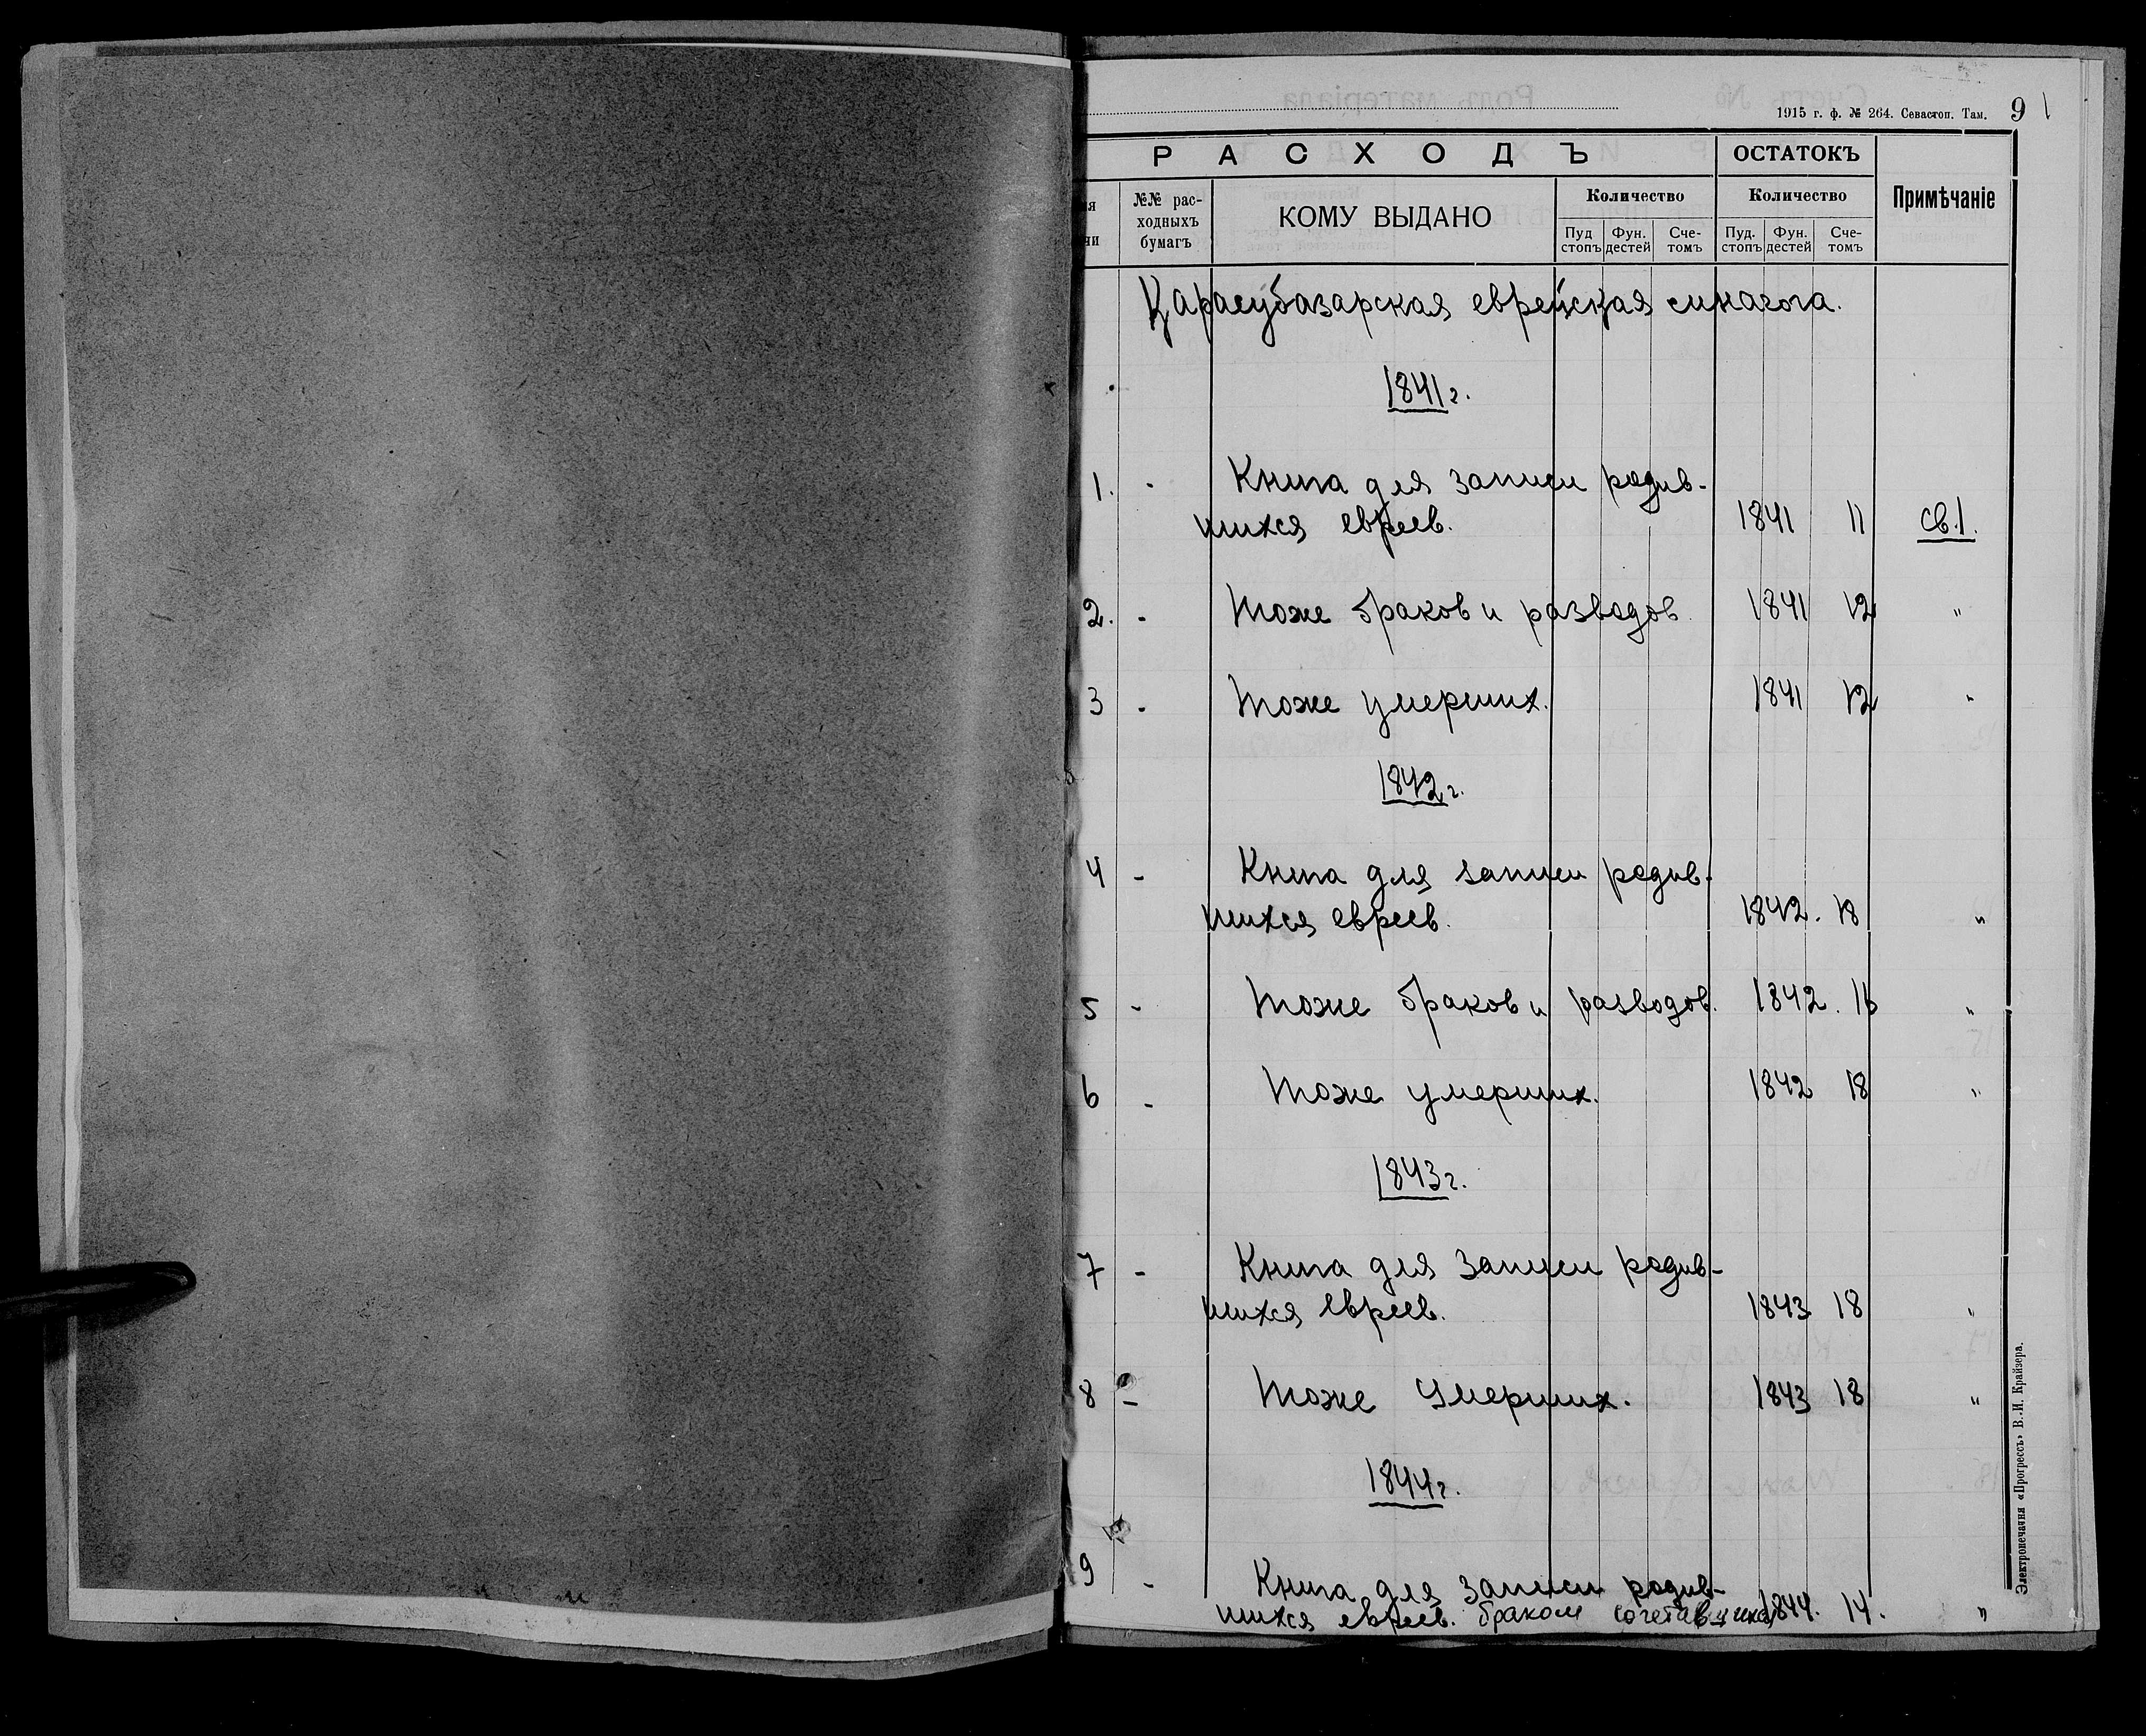 1915 г. ф. № 264. Севастоп. Там. 9
РАСХОДЪ ОСТАТОКЪ
№№ рас-ходныхъ бумагъ КОМУ ВЫДАНО Количество Количество Примѣчаніе
Пуд стопъ Фун. дестей Сче-томъ Пуд. стопъ Фун. дестей Сче-томъ
Карасубазарская еврейская синагога.
1841 г.
1. - Книга для записи родив-
шихся евреев. 1841 11 св.1.
2. - Тоже браков и разводов. 1841 12 "
3 - Тоже умерших. 1841 12 "
1842 г.
4 - Книга для записи родив-
шихся евреев. 1842. 18 "
5 - Тоже браков и разводов. 1842. 16 "
6 - Тоже умерших. 1842 18 "
1843 г.
7 - Книга для записи родив-
шихся евреев. 1843 18 "
8 - Тоже умерших. 1843 18 "
1844 г.
9 - Книга для записи родив-
шихся евреев. браком сочетавшихся 1844. 14. "
Электропечатня «Прогрессъ» В. И. Крайзера.